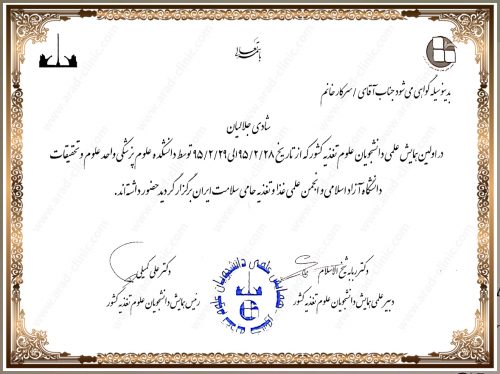 باسمه تعالی
بدینوسیله گواهی می شود جناب آقای / سرکار خانم
شادی جلالیان
در اولین همایش علمی دانشجویان علوم تغذیه کشور که از تاریخ ۹۵/۲/۲۸ الی ۹۵/۲/۲۹ توسط دانشکده علوم پزشکی واحد علوم و تحقیقات
دانشگاه آزاد اسلامی و انجمن علمی غذا و تغذیه حامی سلامت ایران برگزار گردید حضور داشته اند.
دکتر رباب شیخ الاسلام
دبیر علمی همایش دانشجویان علوم تغذیه کشور
دکتر علی کمیلی
رئیس همایش دانشجویان علوم تغذیه کشور
همایش علمی دانشجویان علوم تغذیه
www.arad-clinic.com